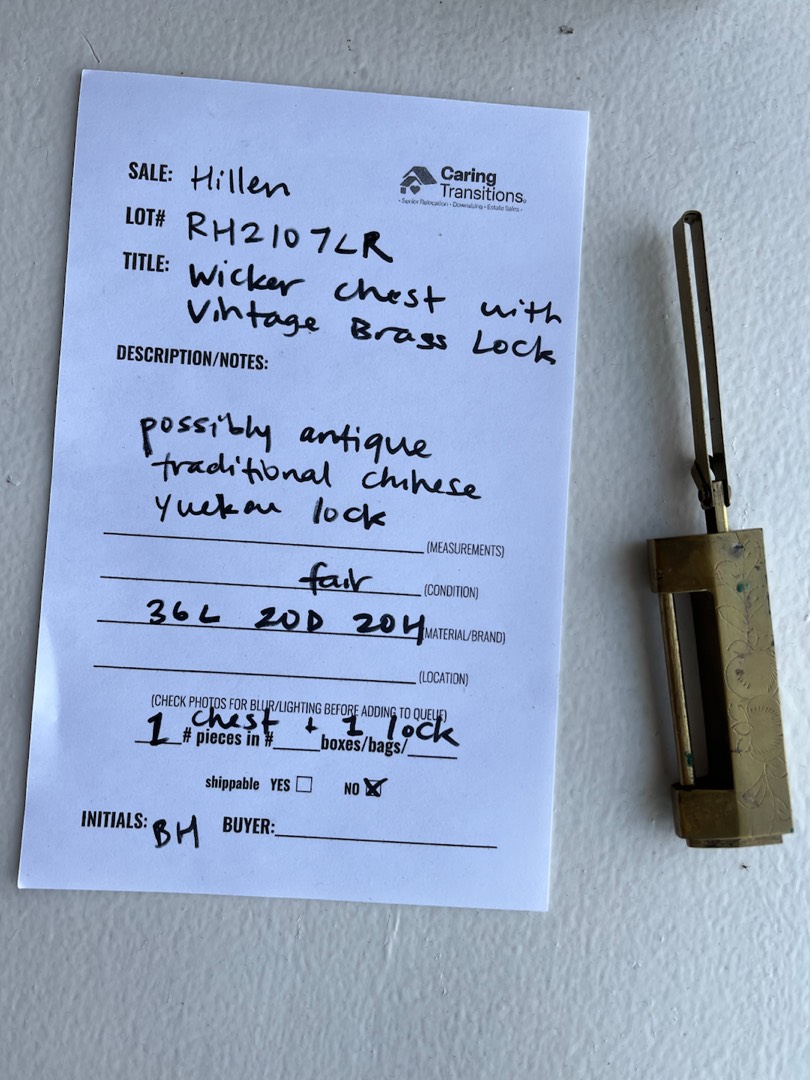 SALE: Hillen
Caring
Transitions®
- Senior Relocation - Downsizing - Estate Sales -
LOT# RH2107LR
TITLE: Wicker chest with
Vintage Brass Lock
DESCRIPTION/NOTES:
possibly antique
traditional chinese
yuekou lock
(MEASUREMENTS)
fair (CONDITION)
36L 20D 20H (MATERIAL/BRAND)
(LOCATION)
(CHECK PHOTOS FOR BLUR/LIGHTING BEFORE ADDING TO QUEUE)
chest + 1 lock
1 # pieces in # boxes/bags/
shippable YES NO
INITIALS: BH BUYER: